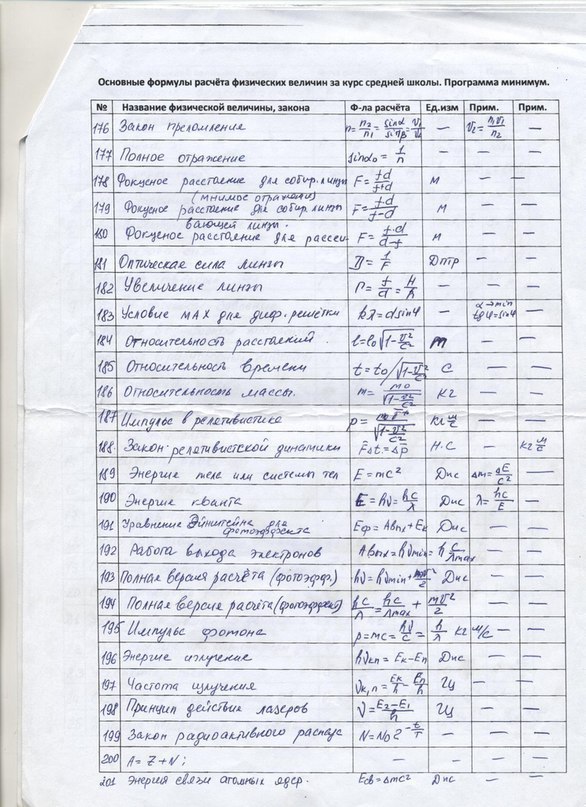 Основные формулы расчёта физических величин за курс средней школы. Программа минимум.
№ Название физической величины, закона Ф-ла расчёта Ед.изм Прим. Прим.
176 Закон преломления n=n₂/n₁=sinα/sinβ=v₁/v₂ — v₂=n₁v₁/n₂ —
177 Полное отражение sinα₀=1/n — — —
178 Фокусное расстояние для собир. линзы F=f·d/f+d м — —
(мнимое отражение)
179 Фокусное расстояние для собир. линзы F=f·d/f-d м — —
180 Фокусное расстояние для рассеи- F=f·d/d-f м — —
вающей линзы.
181 Оптическая сила линзы D=1/F Дптр — —
182 Увеличение линзы Г=f/d=H/h — — —
183 Условие МАХ для диф. решётки kλ=dsinφ — α→min tgφ=sinφ —
184 Относительность расстояний. l=l₀√1-v²/c² м — —
185 Относительность времени t=t₀/√1-v²/c² с — —
186 Относительность массы. m=m₀/√1-v²/c² кг — —
187 Импульс в релятивистике p=m₀v/√1-v²/c² кг м/с — —
188. Закон релятивистской динамики FΔt=Δp Н·с — кг м/с
189 Энергия тела или системы тел E=mc² Дж Δm=ΔE/c² —
190 Энергия кванта E=hν=hc/λ Дж λ=hc/E —
191 Уравнение Эйнштейна для фотоэффекта Eф=Aвых+Eк Дж — —
192 Работа выхода электронов Aвых=hνmin=h c/λmax — —
193 Полная версия расчёта (фотоэфф.) hν=hνmin+mv²/2 Дж — —
194 Полная версия расчёта (фотоэффект) hc/λ=hc/λmax+mv²/2 — —
195 Импульс фотона p=mc=hν/c=h/λ кг м/с — —
196 Энергия излучения hνкn=Eк-En Дж — —
197 Частота излучения νк,n=Eк/h-En/h Гц — —
198 Принцип действия лазеров ν=E₂-E₁/h Гц — —
199 Закон радиоактивного распада N=N₀2^-t/T — — —
200 A=Z+N; — — —
201 Энергия связи атомных ядер. Eсв=Δmc² Дж — —